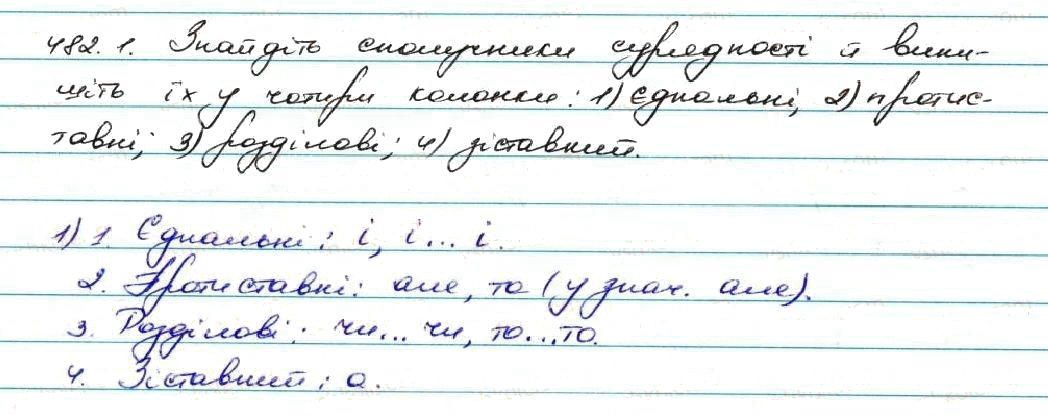 482.1. Знайдіть сполучники сурядності й випи-
шіть їх у чотири колонки: 1) єднальні; 2) протис-
тавні; 3) розділові; 4) зіставний.
1) 1. Єднальні: і, і... і.
2. Протиставні: але, та (у знач. але).
3. Розділові: чи... чи, то...то.
4. Зіставний: а.